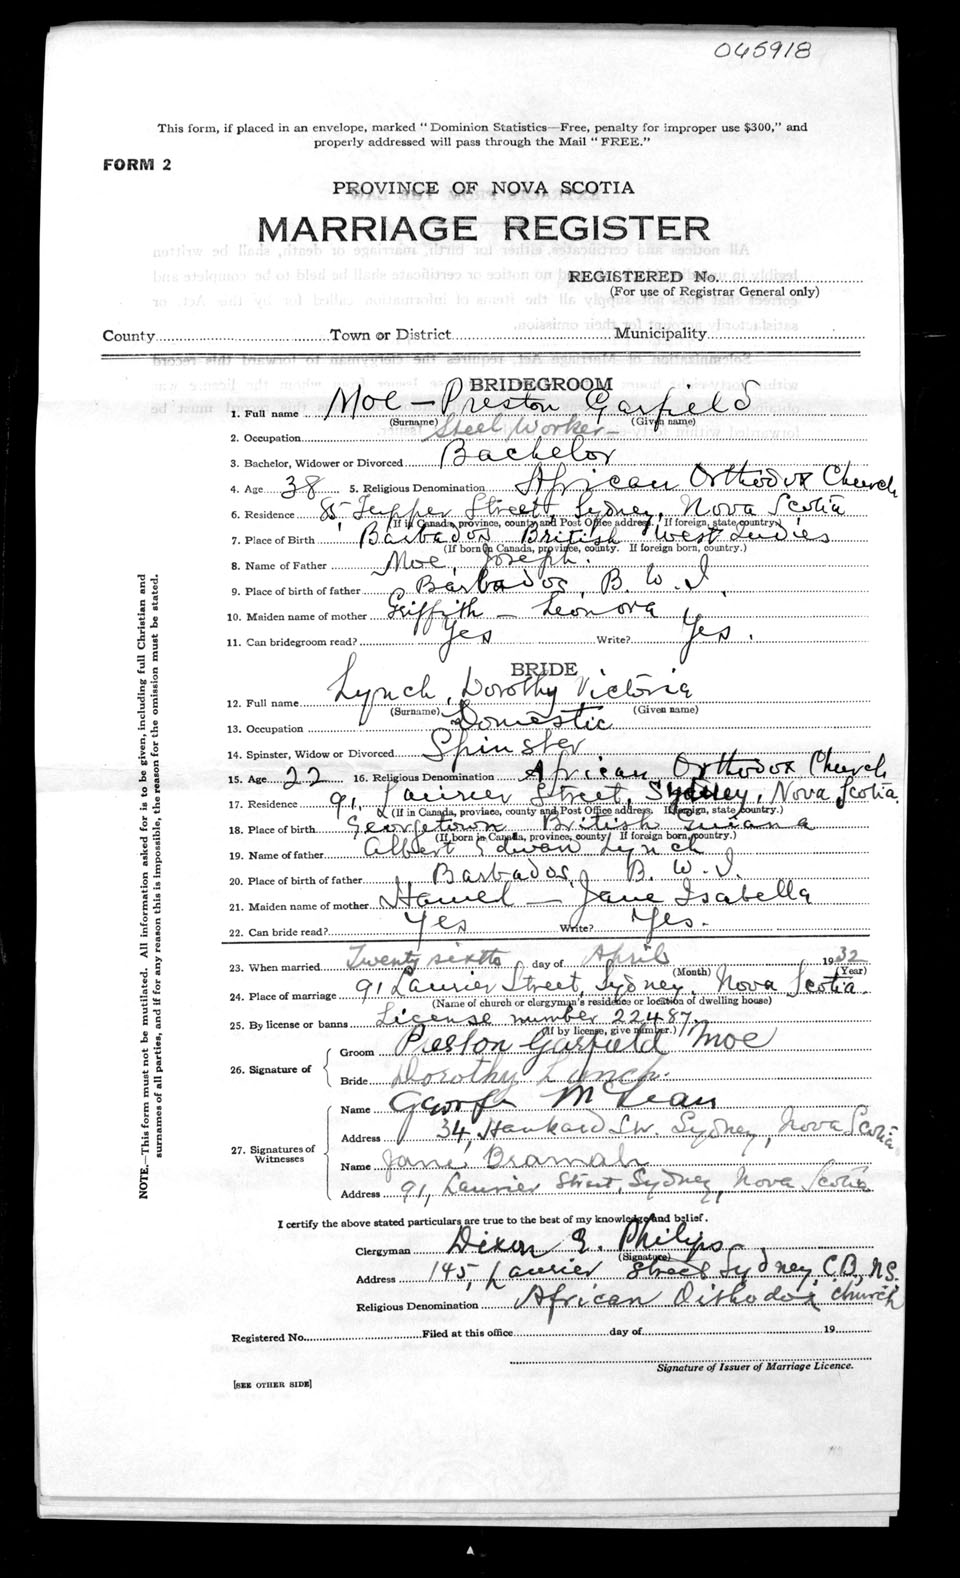 045918
This form, if placed in an envelope, marked "Dominion Statistics—Free, penalty for improper use $300," and
properly addressed will pass through the Mail "FREE."
FORM 2
PROVINCE OF NOVA SCOTIA
MARRIAGE REGISTER
REGISTERED No.
(For use of Registrar General only)
County Town or District Municipality
BRIDEGROOM
1. Full name Moe — Preston Garfield
(Surname) (Given name)
2. Occupation Steel Worker
3. Bachelor, Widower or Divorced Bachelor
4. Age 38 5. Religious Denomination African Orthodox Church
6. Residence 85, Tupper Street, Sydney, Nova Scotia
(If in Canada, province, county and Post Office address. If foreign, state country.)
7. Place of Birth Barbados British West Indies
(If born in Canada, province, county. If foreign born, country.)
8. Name of Father Moe, Joseph.
9. Place of birth of father Barbados, B. W. I.
10. Maiden name of mother Griffith — Leonora
11. Can bridegroom read? Yes Write? Yes.
BRIDE
12. Full name Lynch, Dorothy Victoria
(Surname) (Given name)
13. Occupation Domestic
14. Spinster, Widow or Divorced Spinster
15. Age 22 16. Religious Denomination African Orthodox Church
17. Residence 91, Laurier Street, Sydney, Nova Scotia.
(If in Canada, province, county and Post Office address. If foreign, state country.)
18. Place of birth Georgetown British Guiana
(If born in Canada, province, county. If foreign born, country.)
19. Name of father Albert Edwan Lynch
20. Place of birth of father Barbados, B. W. I.
21. Maiden name of mother Hamel — Jane Isabella
22. Can bride read? Yes Write? Yes.
23. When married Twenty sixth day of April 1932
(Month) (Year)
24. Place of marriage 91 Laurier Street, Sydney, Nova Scotia.
(Name of church or clergyman's residence or location of dwelling house)
25. By license or banns License number 22487.
(If by license, give number.)
26. Signature of
Groom Preston Garfield Moe
Bride Dorothy Lynch.
27. Signatures of Witnesses
Name George McLean
Address 34, St. Sydney, Nova Scotia
Name Jane Bramah
Address 91, Laurier Street, Sydney, Nova Scotia
I certify the above stated particulars are true to the best of my knowledge and belief.
Clergyman Dixon E. Philips
(Signature)
Address 145, Laurier Street Sydney, C.B, N.S.
Religious Denomination African Orthodox Church
Registered No. Filed at this office day of 19
Signature of Issuer of Marriage Licence.
[SEE OTHER SIDE]
NOTE.—This form must not be mutilated. All information asked for is to be given, including full Christian and
surnames of all parties, and if for any reason this is impossible, the reason for the omission must be stated.